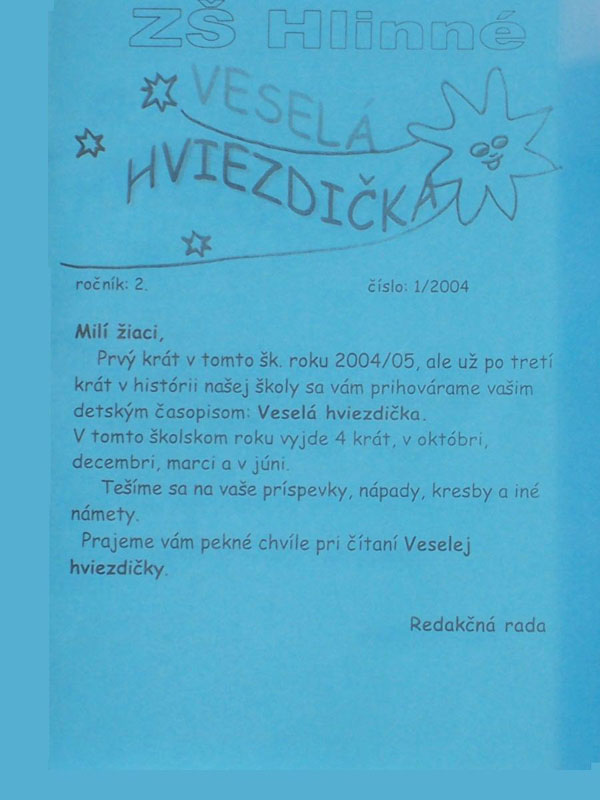 ZŠ Hlinné
VESELÁ
HVIEZDIČKA
ročník: 2. číslo: 1/2004
Milí žiaci,
Prvý krát v tomto šk. roku 2004/05, ale už po tretí
krát v histórii našej školy sa vám prihovárame vašim
detským časopisom: Veselá hviezdička.
V tomto školskom roku vyjde 4 krát, v októbri,
decembri, marci a v júni.
Tešíme sa na vaše príspevky, nápady, kresby a iné
námety.
Prajeme vám pekné chvíle pri čítaní Veselej
hviezdičky.
Redakčná rada